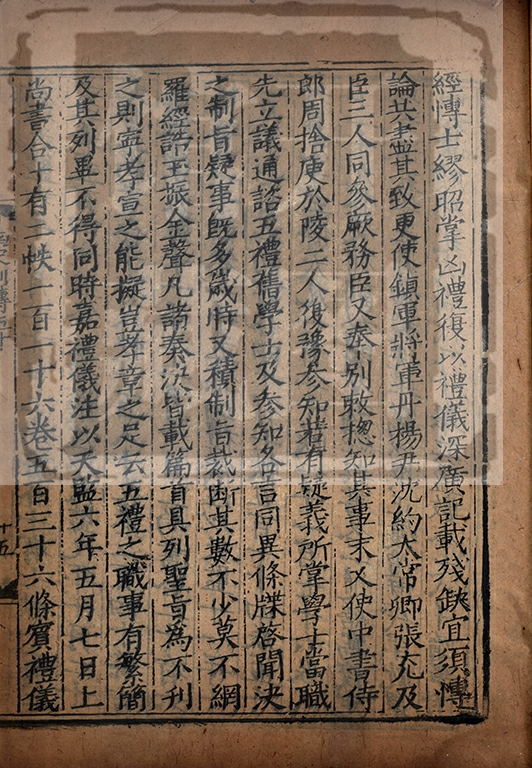 經博士繆昭掌凶禮復以禮儀深廣記載殘缺宜須博
論共盡其致更使鎮軍將軍丹揚尹沈約太常卿張充及
臣三人同參厥務臣又奉別敕揔知其事末又使中書侍
郎周捨庾於陵二人復豫參知若有疑義所掌學士當職
先立議通諮五禮舊學士及參知各言同異條牒啓聞決
之制旨疑事旣多歲時又積制旨裁斷其數不少莫不網
羅經誥玉振金聲凡諸奏決皆載篇首具列聖旨為不刊
之則寧孝宣之能擬豈孝章之足云五禮之職事有繁簡
及其列畢不得同時嘉禮儀注以天監六年五月七日上
尚書合十有二帙一百一十六卷五百三十六條賓禮儀
十五